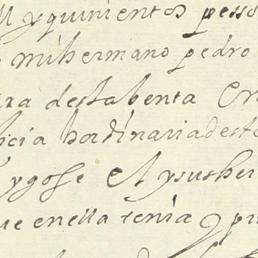 y quinientos pesso
mi hermano pedro
ra desta benta en
icia hordinaria desta
y gose el y su her
ue en ella tenia y pu